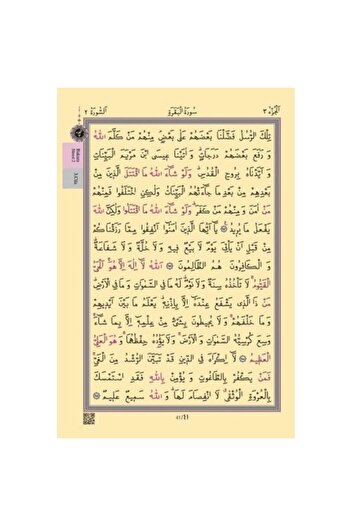 الجزء ٣
سورة البقرة
السورة ٢
تِلْكَ الرُّسُلُ فَضَّلْنَا بَعْضَهُمْ عَلٰى بَعْضٍ مِنْهُمْ مَنْ كَلَّمَ اللّٰهُ
وَ رَفَعَ بَعْضَهُمْ دَرَجَاتٍ وَ اٰتَيْنَا عِيسَى ابْنَ مَرْيَمَ الْبَيِّنَاتِ
وَ اَيَّدْنَاهُ بِرُوحِ الْقُدُسِ وَلَوْ شَٓاءَ اللّٰهُ مَا اقْتَتَلَ الَّذِينَ مِنْ
بَعْدِهِمْ مِنْ بَعْدِ مَا جَٓاءَتْهُمُ الْبَيِّنَاتُ وَلٰكِنِ اخْتَلَفُوا فَمِنْهُمْ
مَنْ اٰمَنَ وَ مِنْهُمْ مَنْ كَفَرَ وَلَوْ شَٓاءَ اللّٰهُ مَا اقْتَتَلُوا وَلٰكِنَّ اللّٰهَ
يَفْعَلُ مَا يُرِيدُ يَٓا اَيُّهَا الَّذِينَ اٰمَنُٓوا اَنْفِقُوا مِمَّا رَزَقْنَاكُمْ
مِنْ قَبْلِ اَنْ يَأْتِيَ يَوْمٌ لَا بَيْعٌ فِيهِ وَ لَا خُلَّةٌ وَ لَا شَفَاعَةٌ
وَ الْكَافِرُونَ هُمُ الظَّالِمُونَ اَللّٰهُ لَٓا اِلٰهَ اِلَّا هُوَ اَلْحَيُّ
الْقَيُّومُ لَا تَأْخُذُهُ سِنَةٌ وَلَا نَوْمٌ لَهُ مَا فِي السَّمٰوَاتِ وَ مَا فِي الْاَرْضِ
مَنْ ذَا الَّذِي يَشْفَعُ عِنْدَهُٓ اِلَّا بِاِذْنِهِ يَعْلَمُ مَا بَيْنَ اَيْدِيهِمْ
وَ مَا خَلْفَهُمْ وَ لَا يُحِيطُونَ بِشَيْءٍ مِنْ عِلْمِهِٓ اِلَّا بِمَا شَٓاءَ
وَسِعَ كُرْسِيُّهُ السَّمٰوَاتِ وَ الْاَرْضَ وَلَا يَؤُدُهُ حِفْظُهُمَا وَ هُوَ الْعَلِيُّ
الْعَظِيمُ لَٓا اِكْرَاهَ فِي الدِّينِ قَدْ تَبَيَّنَ الرُّشْدُ مِنَ الْغَيِّ
فَمَنْ يَكْفُرْ بِالطَّاغُوتِ وَ يُؤْمِنْ بِاللّٰهِ فَقَدِ اسْتَمْسَكَ
بِالْعُرْوَةِ الْوُثْقٰى لَا انْفِصَامَ لَهَا وَ اللّٰهُ سَمِيعٌ عَلِيمٌ
41/٤١
Bakara
Sûresi 2
3.Cüz